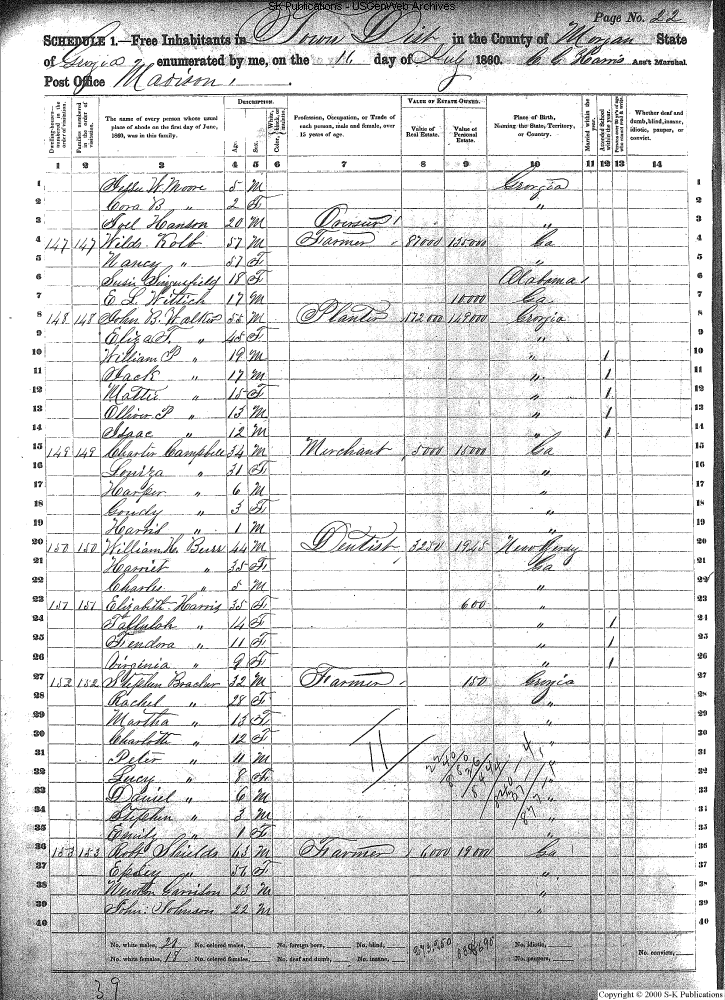 S-K Publications - USGenWeb Archives
Page No. 22
SCHEDULE 1.—Free Inhabitants in Town Dist in the County of Morgan State
of Georgia enumerated by me, on the 11 day of July 1860. C. C. Harris Ass't Marshal.
Post Office Madison.
Dwelling-houses numbered in the order of visitation.
Families numbered in the order of visitation.
The name of every person whose usual place of abode on the first day of June, 1860, was in this family.
DESCRIPTION.
Age.
Sex.
Color, White, black, or mulatto.
Profession, Occupation, or Trade of each person, male and female, over 15 years of age.
VALUE OF ESTATE OWNED.
Value of Real Estate.
Value of Personal Estate.
Place of Birth, Naming the State, Territory, or Country.
Married within the year.
Attended School within the year.
Whether deaf and dumb, blind, insane, idiotic, pauper, or convict.
1 2 3 4 5 6 7 8 9 10 11 12 13 14
1 W. Moore 5 M Georgia 1
2 Cora B " 2 F " 2
3 Joel Hanson 20 M Overseer " 3
4 147 147 Wilds Kolb 57 M Farmer 87000 135000 Ga 4
5 Nancy " 51 F " 5
6 Susie 18 F Alabama 6
7 E. L. Wittich 17 M 10000 Ga 7
8 148 148 John B. Walker 55 M Planter 172000 149000 Georgia 8
9 Eliza F. " 45 F " 9
10 William P " 19 M " 1 10
11 Hack " 17 M " 1 11
12 Mattie " 15 F " 1 12
13 Olliver P " 13 M " 1 13
14 Isaac " 12 M " 1 14
15 149 149 Charter Campbell 34 M Merchant 5000 15000 Ga 15
16 Louiza " 31 F " 16
17 Harper " 6 M " 17
18 Goudy " 3 F " 18
19 Harris " 1 M " 19
20 150 150 William H. Burr 44 M Dentist 3250 1945 New Jersey 20
21 Harriet " 35 F Ga 21
22 Charles " 5 M " 22
23 151 151 Elizabeth Harris 35 F 600 " 23
24 Tallulah " 14 F " 1 24
25 Fendora " 11 F " 1 25
26 Virginia " 9 F " 1 26
27 152 152 Stephen Brachar 32 M Farmer 150 Georgia 27
28 Rachel " 28 F " 28
29 Martha " 13 F " 29
30 Charlotte " 12 F " 30
31 Peter " 11 M " 31
32 Lucy " 8 F " 32
33 Daniel " 6 M " 33
34 Stephen " 3 M " 34
35 Emily " 1 F " 35
36 153 153 Robt Shields 63 M Farmer 6000 19000 Ga 36
37 Epsey " 56 F " 37
38 Garrison 23 M " 38
39 John Johnson 22 M " 39
40 40
11
No. white males, 21 No. colored males, No. foreign born, No. blind, 273,250 No. idiotic,
No. white females, 18 No. colored females, No. deaf and dumb, No. insane, No. paupers, No. convicts,
39
Copyright © 2000 S-K Publications